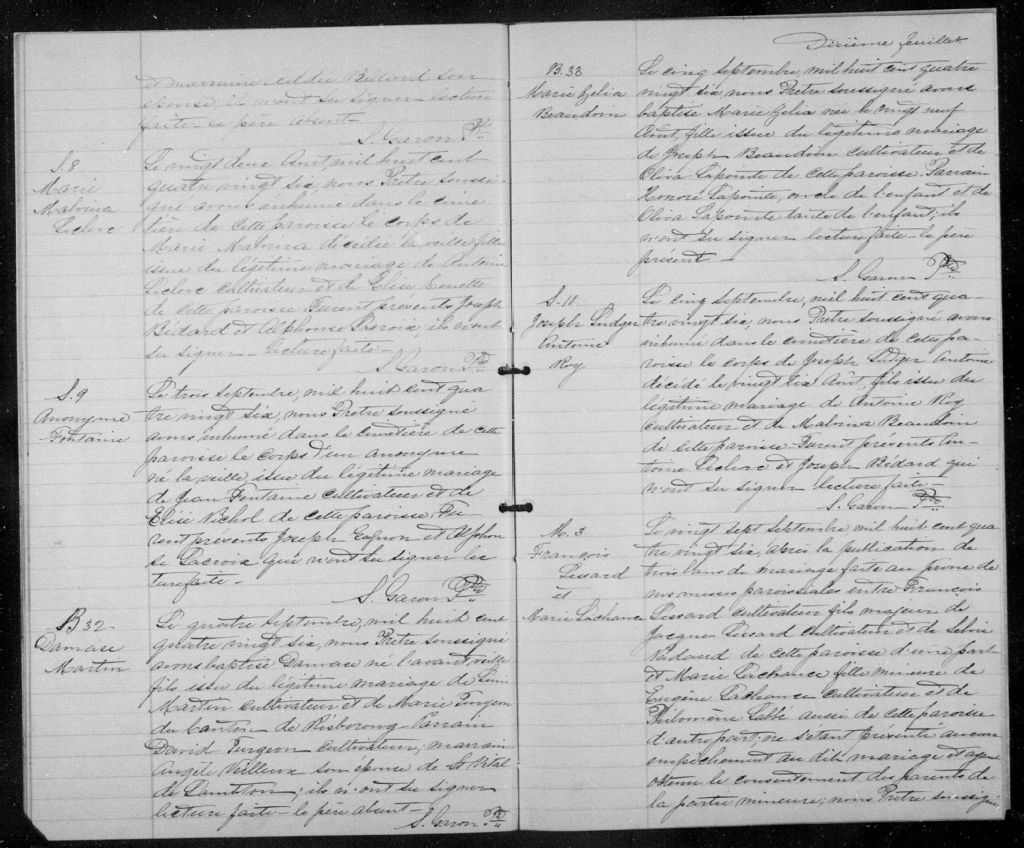 et marraine Bédard son
épouse ils n'ont su signer lecture
faite le père absent—
S. Garon Ptre
S.8
Marie
Malvina
Leclerc
Le vingt deux Août, mil huit cent
quatre vingt six, nous Prêtre soussi-
gné avons inhumé dans le cime
tière de cette paroisse le corps de
Marie Malvina décédée la veille fille
issue du légitime mariage de Antoine
Leclerc cultivateur et de Elise
de cette paroisse Furent présents Joseph
Bédard et Alphonse Lacroix, ils n'ont
su signer— lecture faite—
S. Garon Ptre
S.9
Anonyme
Fontaine
Le trois Septembre, mil huit cent qua
tre vingt six, nous Prêtre soussigné
avons inhumé dans le cimetière de cette
paroisse le corps d'un anonyme
né la veille, issu du légitime mariage
de Jean Fontaine cultivateur et de
Elise Nichol de cette paroisse. Fu-
rent présents Joseph Gagnon et Alphon
se Lacroix qui n'ont su signer lec
ture faite—
S. Garon Ptre
B32
Damase
Martin
Le quatre Septembre, mil huit cent
quatre vingt six, nous Prêtre soussigné
avons baptisé Damase né l'avant veille
fils issu du légitime mariage de Louis
Martin cultivateur et de Marie Turgeon
du Canton de Risborong Parrain
David Turgeon cultivateur, marraine
Angèle Veilleux son épouse de St Vital
de Lambton; ils n'ont su signer
lecture faite— le père absent—
S. Garon Ptre
Dixième feuillet
B.33
Marie Célia
Beaudoin
Le cinq Septembre, mil huit cent quatre
vingt six, nous Prêtre soussigné avons
baptisé Marie Célia née le vingt neuf
Août, fille issue du légitime mariage
de Joseph Beaudoin cultivateur et de
Eliza Lapointe de cette paroisse. Parrain
Honoré Lapointe, oncle de l'enfant et de
Eliza Lapointe tante de l'enfant; ils
n'ont su signer lecture faite— le père
présent—
S. Garon Ptre
S.10
Joseph Ludger
Antoine
Roy
Le cinq Septembre, mil huit cent qua-
tre vingt six, nous Prêtre soussigné avons
inhumé dans le cimetière de cette pa-
roisse le corps de Joseph Ludger Antoine
décédé le vingt six Août, fils issu du
légitime mariage de Antoine Roy
cultivateur et de Malvina Beaudoin
de cette paroisse. Furent présents An-
toine Leclerc et Joseph Bédard qui
n'ont su signer lecture faite—
S. Garon Ptre
M.3
François
Lessard
et
Marie Lachance
Le vingt sept Septembre mil huit cent qua
tre vingt six, après la publication de
trois bans de mariage faite au prône de
nos messes paroissiales entre François
Lessard cultivateur fils majeur de
Jacques Lessard cultivateur et de
Nadeau de cette paroisse d'une part
et Marie Lachance fille mineure de
Eugène Lachance cultivateur et de
Philomène Labbé aussi de cette paroisse
d'autre part; ne s'étant présenté aucun
empêchement au dit mariage et ayant
obtenu le consentement des parents de
la partie mineure; nous Prêtre soussigné